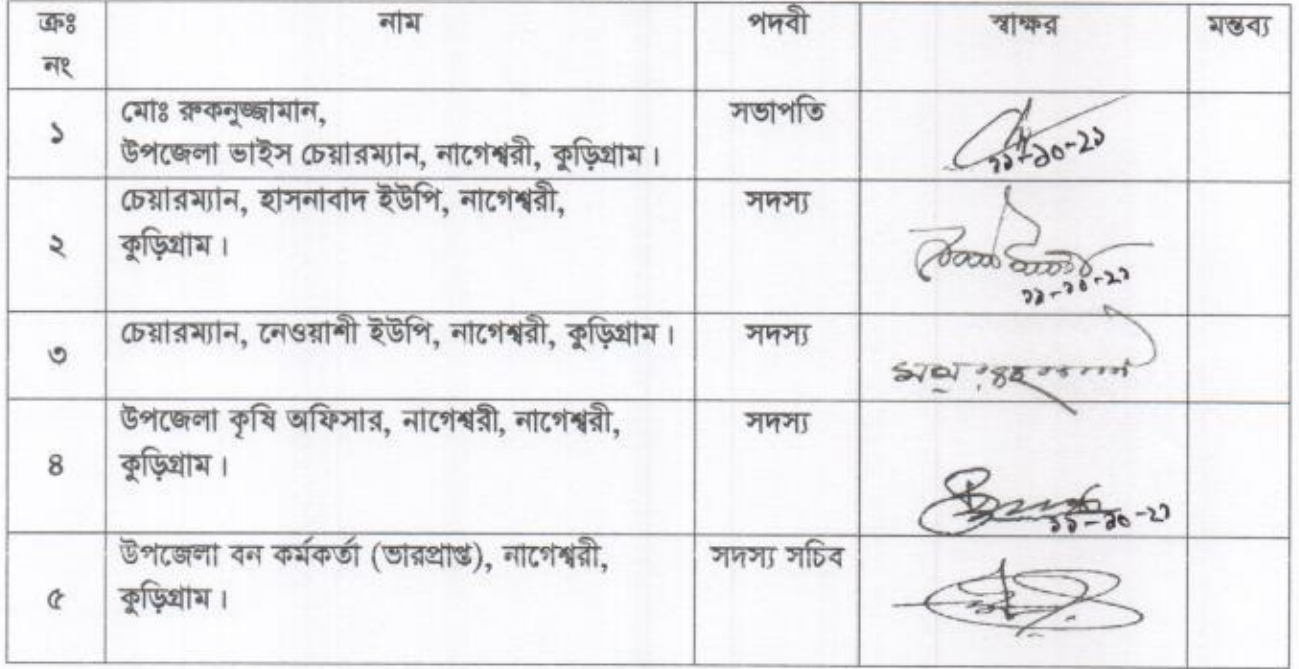 ক্রঃ নাম পদবী স্বাক্ষর মন্তব্য
নং
১ মোঃ রুকনুজ্জামান, সভাপতি
উপজেলা ভাইস চেয়ারম্যান, নাগেশ্বরী, কুড়িগ্রাম।
১১-১০-২১
২ চেয়ারম্যান, হাসনাবাদ ইউপি, নাগেশ্বরী, সদস্য
কুড়িগ্রাম।
১১-১০-২১
৩ চেয়ারম্যান, নেওয়াশী ইউপি, নাগেশ্বরী, কুড়িগ্রাম। সদস্য
৪ উপজেলা কৃষি অফিসার, নাগেশ্বরী, নাগেশ্বরী, সদস্য
কুড়িগ্রাম।
১১-১০-২১
৫ উপজেলা বন কর্মকর্তা (ভারপ্রাপ্ত), নাগেশ্বরী, সদস্য সচিব
কুড়িগ্রাম।